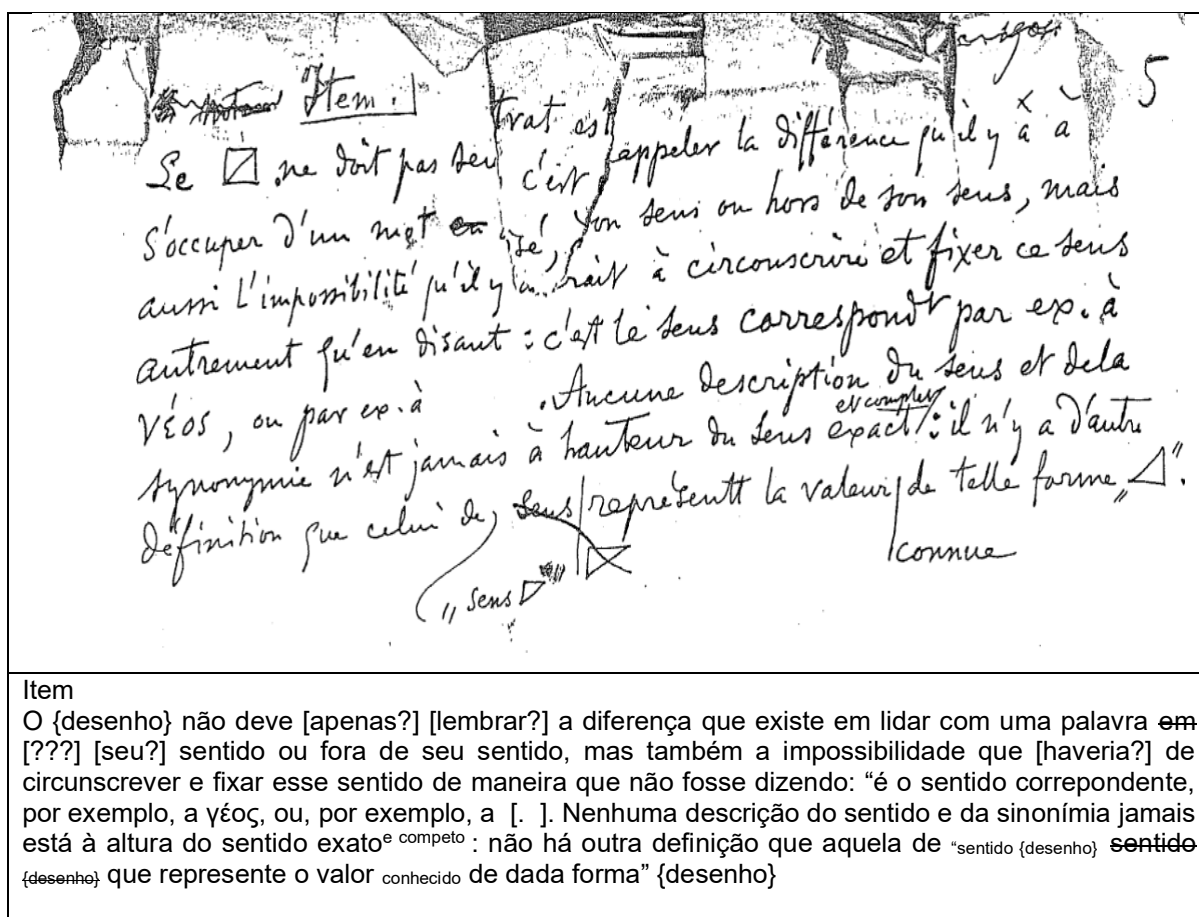 Item.
5
Le ne doit pas seu trat est appeler la différence qu'il y a à
s'occuper d'un mot en c'est sé, son sens ou hors de son sens, mais
aussi l'impossibilité qu'il y rait à circonscrire et fixer ce sens
autrement qu'en disant : c'est le sens correspondt par ex. à
νέος, ou par ex. à . Aucune description du sens et de la
synonymie n'est jamais à hauteur du sens exact et complet : il n'y a d'autre
définition que celui de sens représentt la valeur de telle forme „ ".
„ sens "
connue
Item
O {desenho} não deve [apenas?] [lembrar?] a diferença que existe em lidar com uma palavra em
[???] [seu?] sentido ou fora de seu sentido, mas também a impossibilidade que [haveria?] de
circunscrever e fixar esse sentido de maneira que não fosse dizendo: “é o sentido correpondente,
por exemplo, a γέος, ou, por exemplo, a [. ]. Nenhuma descrição do sentido e da sinonímia jamais
está à altura do sentido exato e competo : não há outra definição que aquela de “sentido {desenho} sentido
{desenho} que represente o valor conhecido de dada forma” {desenho}